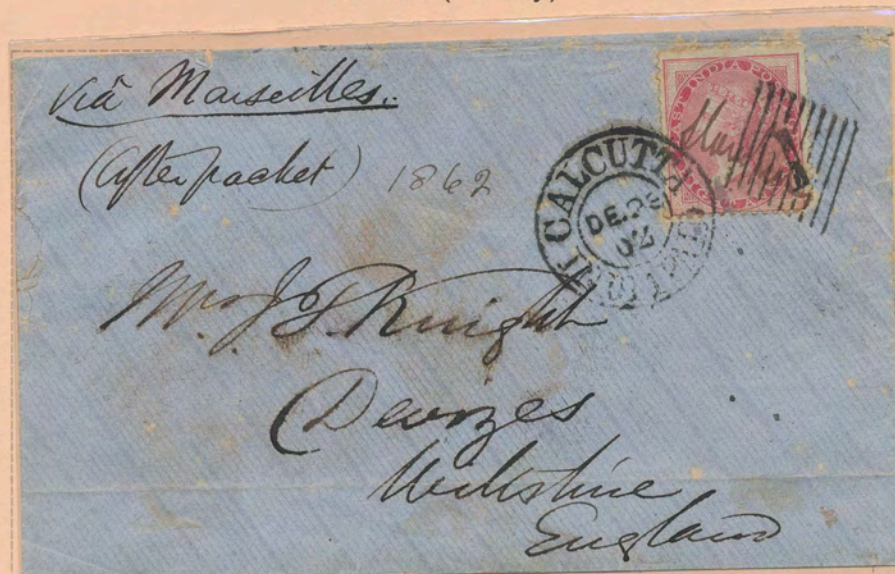 Via Marseilles.
(After packet) 1862
EAST INDIA PO
CALCUTTA
DE.29
62
Mr. J. G. Knight
Devizes
Wiltshire
England